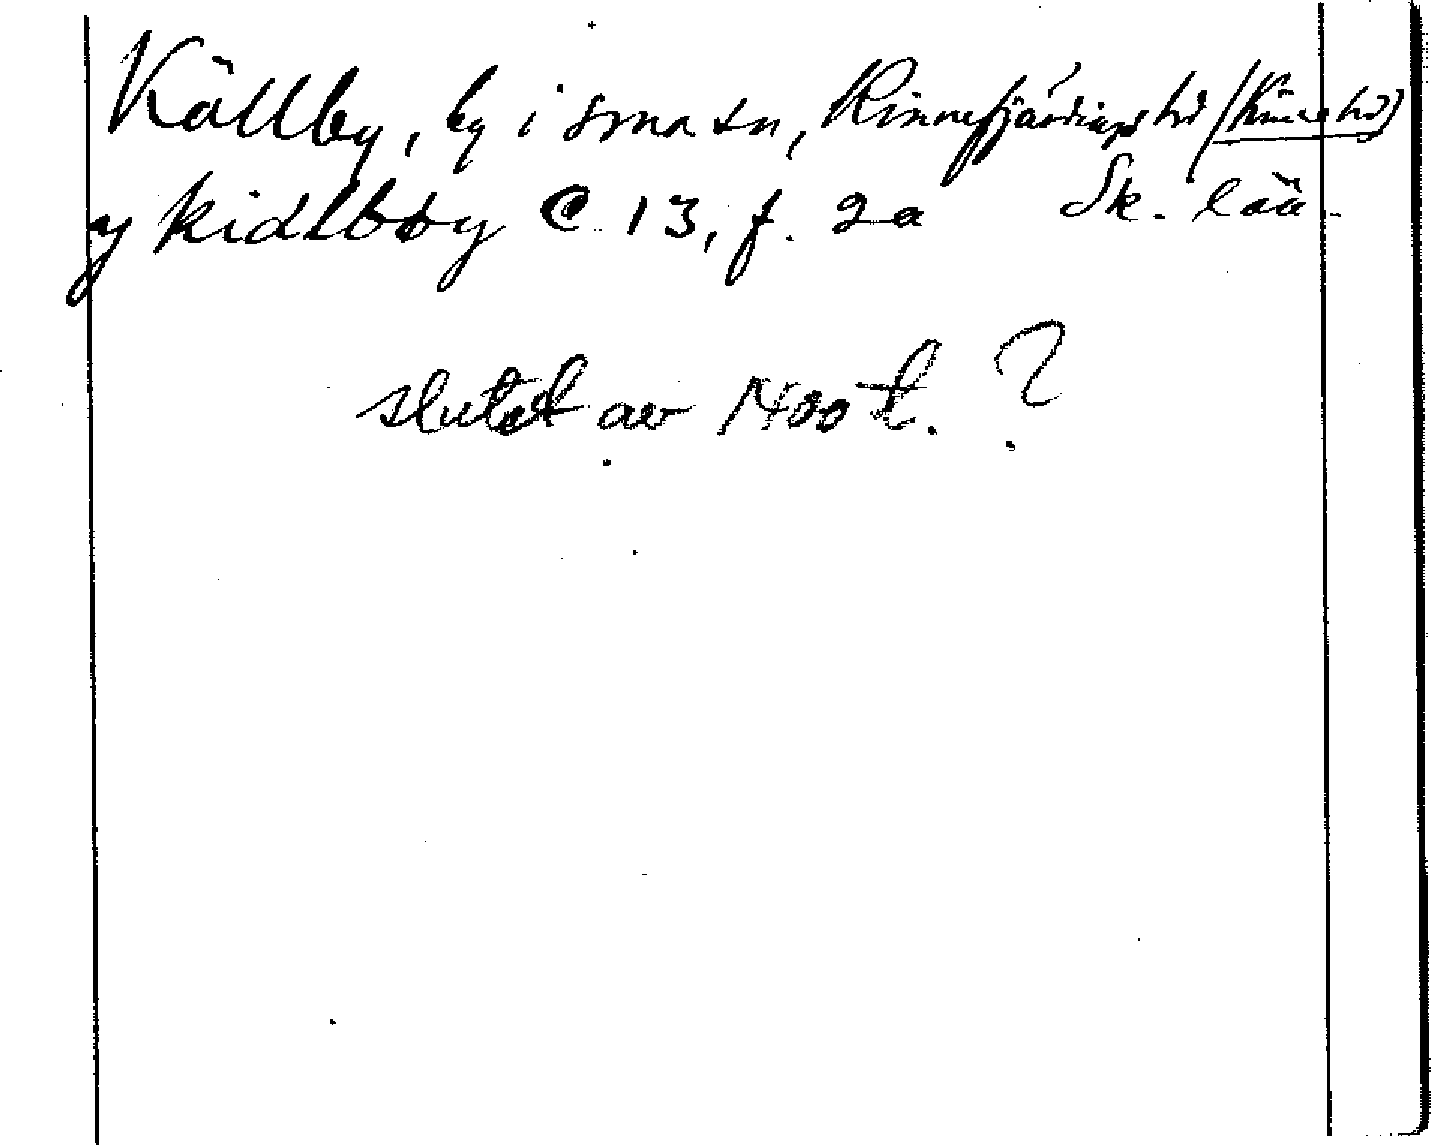 Källby, by i smn sn, Kinnefjärdings hd (Kinne hd)
y kidlbby C 13, f. 2a Sk. län.
slutet av 1400 t. ?